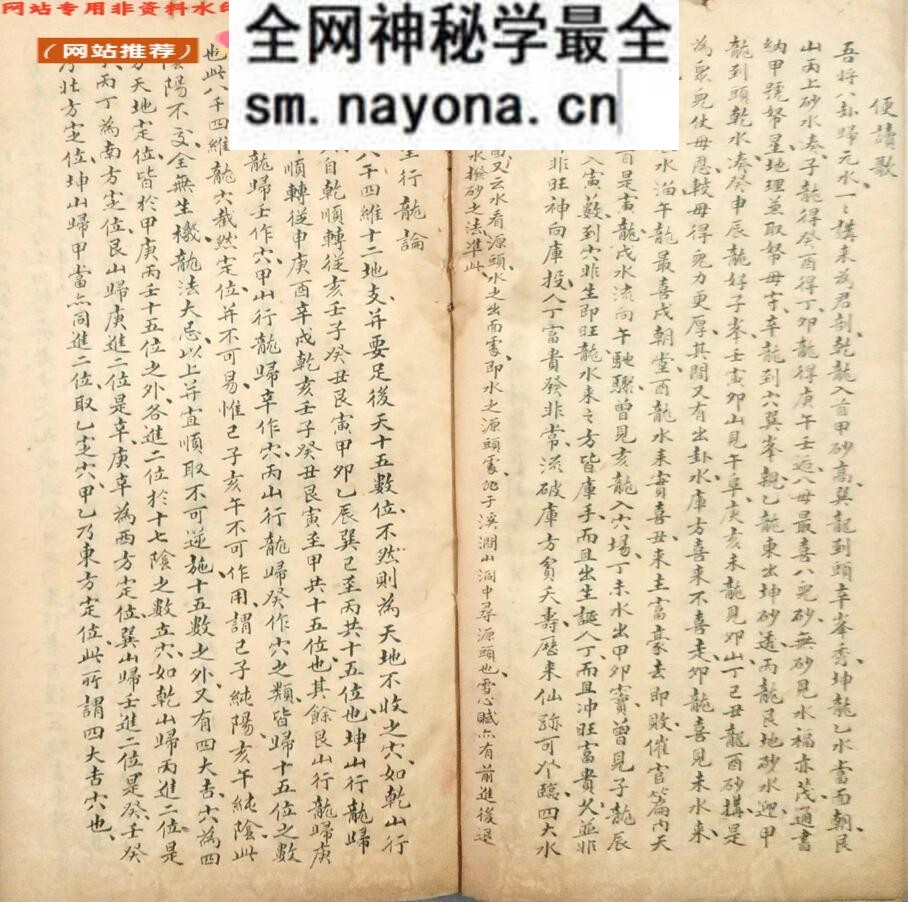 网站专用非资料水
(网站推荐)
全网神秘学最全
sm.nayona.cn
便讀歌
吾將八卦歸元水一一講来為君剖乾龍入首甲砂高巽龍到頭辛峯秀坤龍乙水當面朝艮
山丙上砂水湊子龍得癸酉得丁卯龍得庚午壬返八母最喜八兒砂無砂見水福亦茂通書
納甲號帑星地理並取帑毋辛龍到六巽峯親乙龍東出坤砂透丙龍艮地砂水迎甲
龍到頭乾水湊癸申辰龍好子峯壬寅卯山見午阜庚亥未龍見卯山丁巳丑龍酉砂搆是
為眾兒仗母恩較毋得兒力更厚其間又有出卦水庫方喜来不喜走卯龍喜見未水来
水淄午龍最喜戌朝堂酉龍水来實喜丑来主富豪去即敗催官篇内天
首是寅龍戌水流向午馳驟曾見亥龍入穴場丁未水出甲卯竇曾見子龍辰
入寅薮到穴非生即旺龍水来之方皆庫手而且出生誕人丁而且冲旺富貴久並非
非旺神向庫投人丁富貴發非常流破庫方貧夭壽歷来仙跡可登臨四大水
又云水看源頭水之出面處即水之源頭處他于溪澗山洞中尋源頭也雪心賦亦有前進後退
水撥砂之法準此
行龍論
八干四維十二地支并要足後天十五數位不然則為天地不收之穴如乾山行
自乾順轉從亥壬子癸丑艮寅甲卯乙辰巽巳至丙共十五位也坤山行龍歸
順轉從申庚酉辛戌乾亥壬子癸丑艮寅至甲共十五位也其餘艮山行龍歸庚
龍歸壬作穴甲山行龍歸辛作穴丙山行龍歸癸作穴之類皆歸十五位之數
也此八干四維龍穴截然定位并不可易惟巳子亥午不可作用謂巳子純陽亥午純陰此
陰陽不交全無生機龍法大忌以上并宜順取不可逆施十五數之外又有四大吉穴為四
方天地定位皆於甲庚丙壬十五位之外各進二位於十七陰之數立穴如乾山歸丙進二位是
丙丁為南方定位艮山歸庚進二位是辛庚辛為西方定位巽山歸壬進二位是癸壬癸
乃北方定位坤山歸甲當亦同進二位取乙定穴甲乙乃東方定位此所謂四大吉穴也